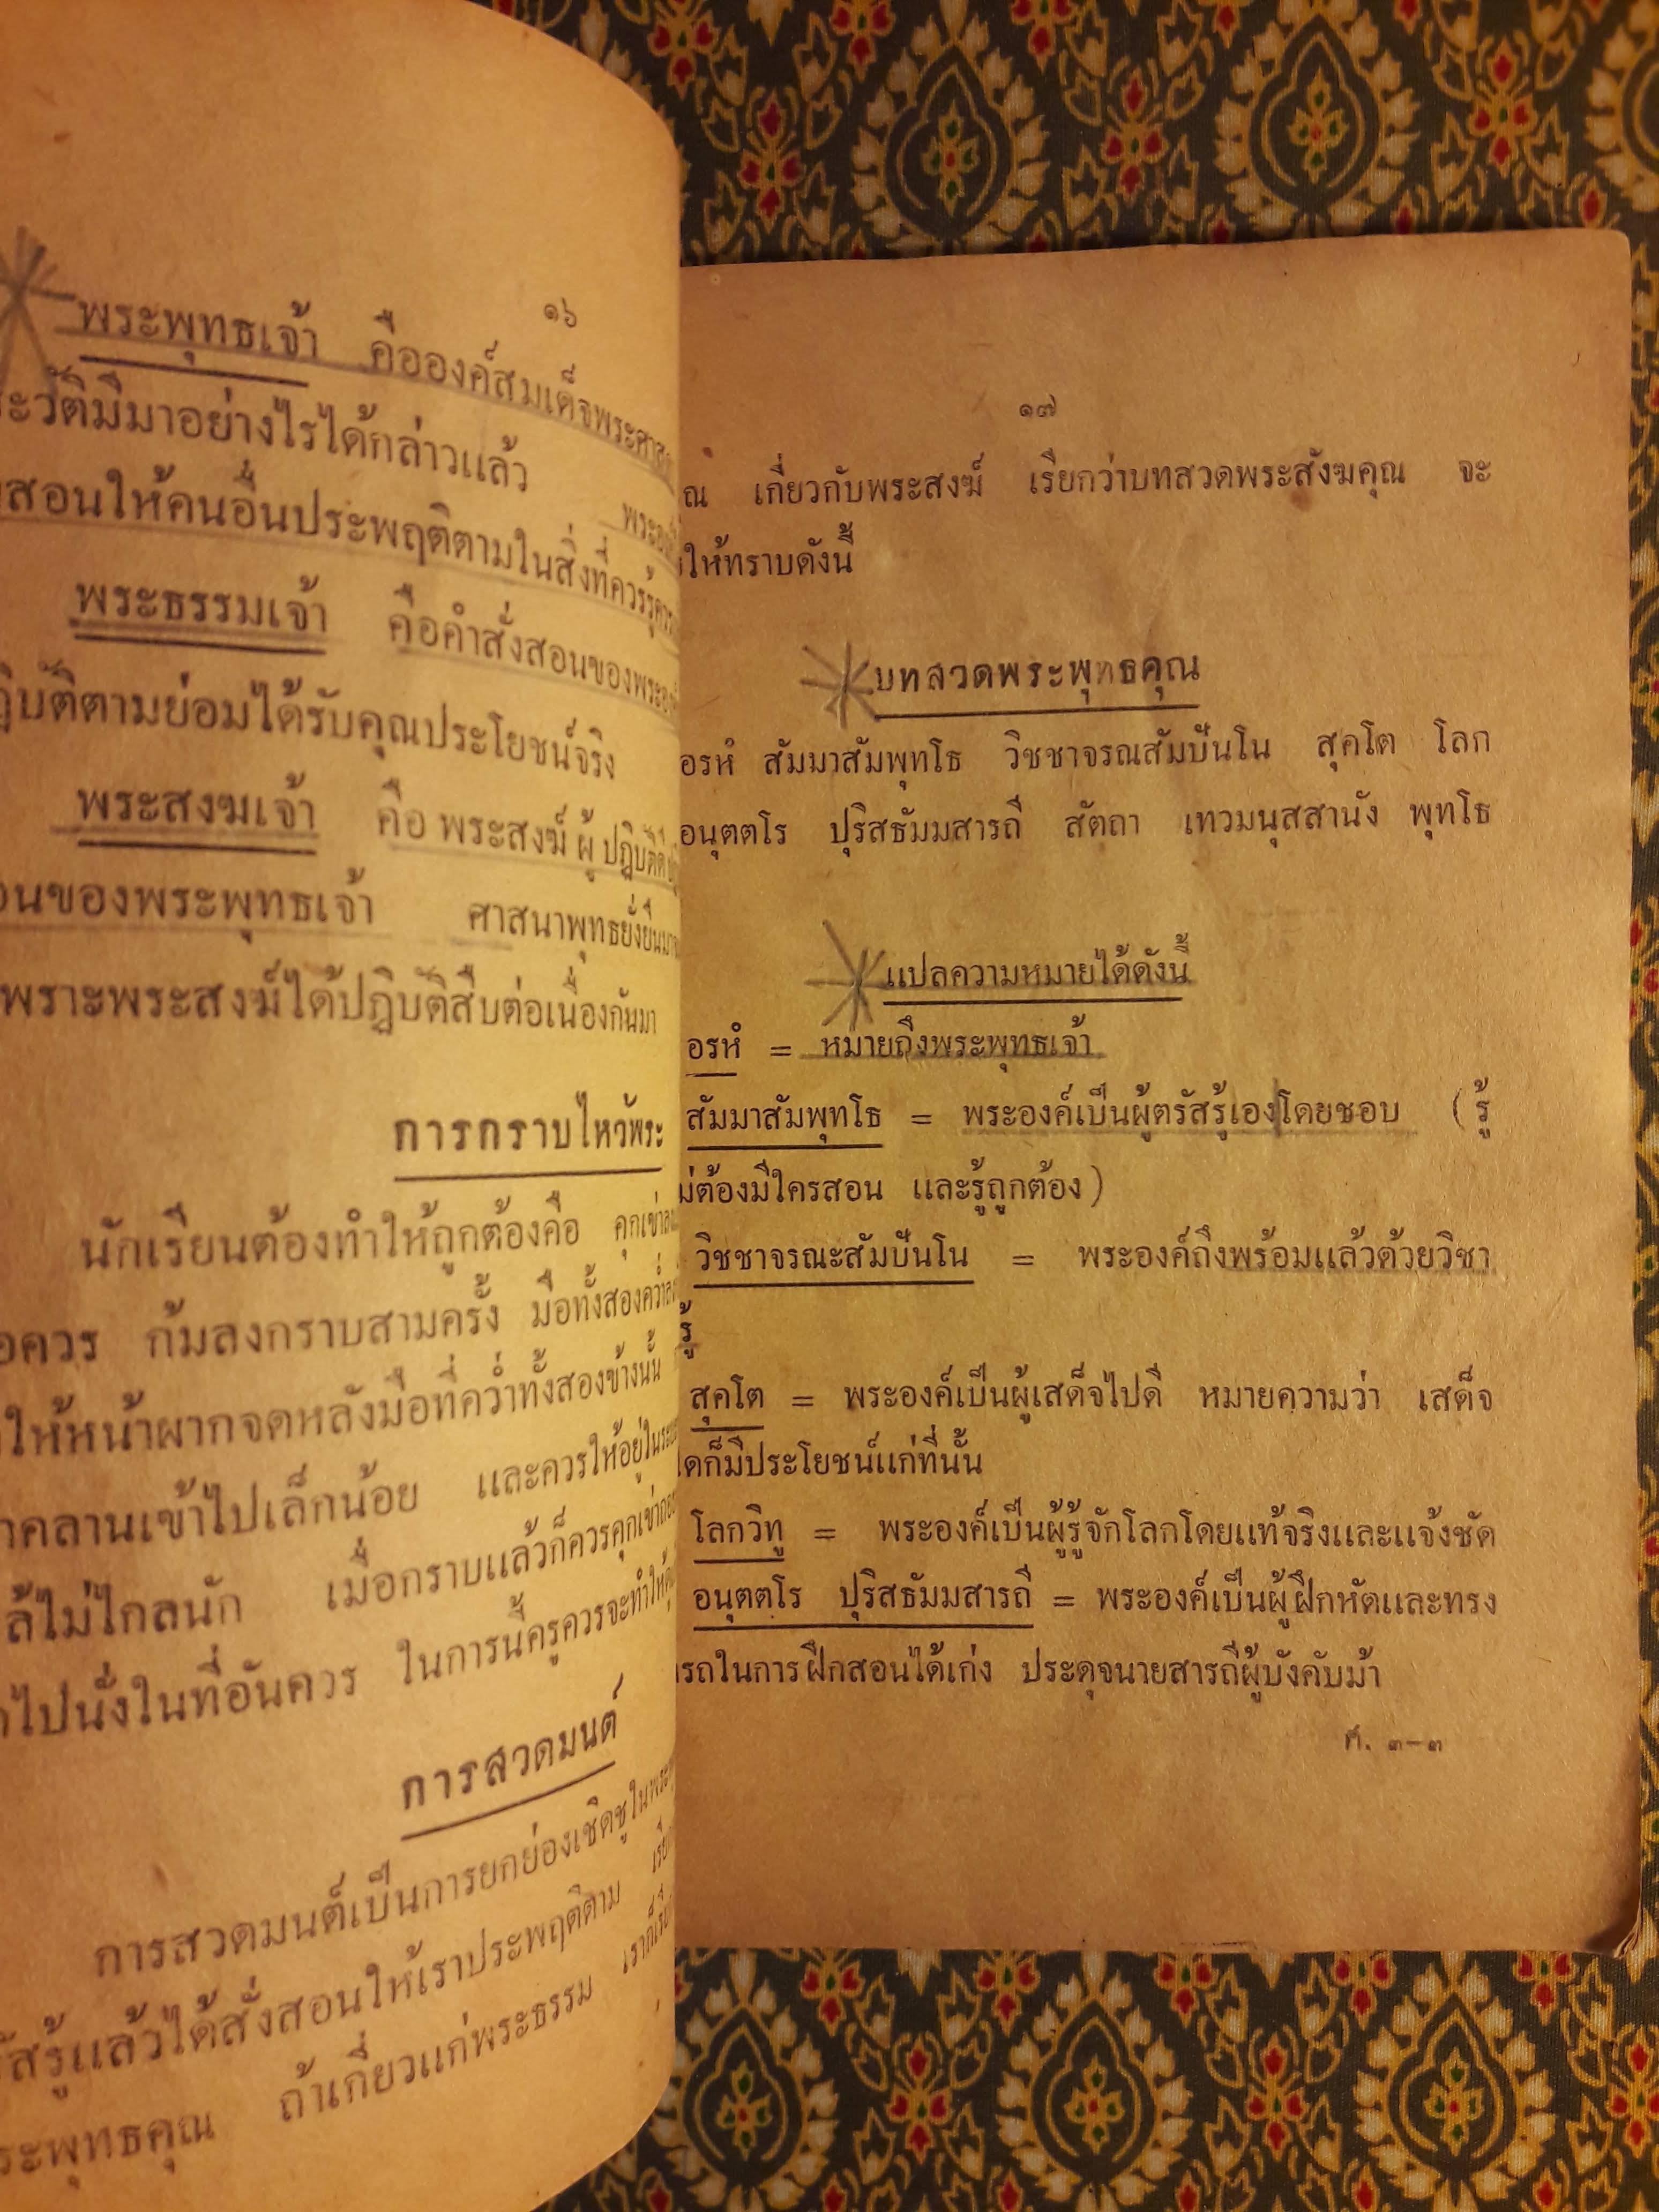 ๑๖
พระพุทธเจ้า คือองค์สมเด็จพระศาส
ะวัติมีมาอย่างไรได้กล่าวแล้ว
สอนให้คนอื่นประพฤติตามในสิ่งที่ควรรู้
พระธรรมเจ้า คือคำสั่งสอนของพระ
ฏิบัติตามย่อมได้รับคุณประโยชน์จริง
พระสงฆเจ้า คือ พระสงฆ์ ผู้ ปฏิบัติ
อนของพระพุทธเจ้า ศาสนาพุทธยั่งยืนมา
พราะพระสงฆ์ได้ปฏิบัติสืบต่อเนื่องกันมา
การกราบไหว้พระ
นักเรียนต้องทำให้ถูกต้องคือ คุกเข่า
อควร ก้มลงกราบสามครั้ง มือทั้งสองคว่ำ
ให้หน้าผากจดหลังมือที่คว่ำทั้งสองข้างนั้น
คลานเข้าไปเล็กน้อย และควรให้อยู่ใน
ล้ไม่ไกลนัก เมื่อกราบแล้วก็ควรคุกเข่า
ไปนั่งในที่อันควร ในการนี้ครูควรจะทำให้
การสวดมนต์
การสวดมนต์เป็นการยกย่องเชิดชูในพระ
สรู้แล้วได้สั่งสอนให้เราประพฤติตาม
ระพุทธคุณ ถ้าเกี่ยวแก่พระธรรม
๑๗
ณ เกี่ยวกับพระสงฆ์ เรียกว่าบทสวดพระสังฆคุณ จะ
ให้ทราบดังนี้
บทสวดพระพุทธคุณ
อรหํ สัมมาสัมพุทโธ วิชชาจรณสัมปันโน สุคโต โลก
อนุตตโร ปุริสธัมมสารถี สัตถา เทวมนุสสานัง พุทโธ
แปลความหมายได้ดังนี้
อรหํ = หมายถึงพระพุทธเจ้า
สัมมาสัมพุทโธ = พระองค์เป็นผู้ตรัสรู้เองโดยชอบ (รู้
ม่ต้องมีใครสอน และรู้ถูกต้อง)
วิชชาจรณะสัมปันโน = พระองค์ถึงพร้อมแล้วด้วยวิชา
รู้
สุคโต = พระองค์เป็นผู้เสด็จไปดี หมายความว่า เสด็จ
ดก็มีประโยชน์แก่ที่นั้น
โลกวิทู = พระองค์เป็นผู้รู้จักโลกโดยแท้จริงและแจ้งชัด
อนุตตโร ปุริสธัมมสารถี = พระองค์เป็นผู้ฝึกหัดและทรง
รถในการฝึกสอนได้เก่ง ประดุจนายสารถีผู้บังคับม้า
ศ. ๓-๓